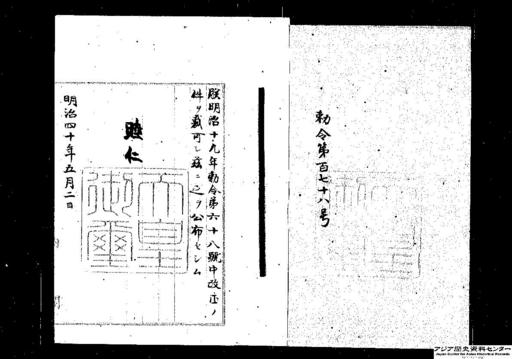 勅令第百七十八号
朕明治十九年勅令第六十八號中改正ノ
件ヲ裁可シ茲ニ之ヲ公布セシム
睦仁
天皇
御璽
明治四十年五月二日
アジア歴史資料センター
Japan Center for Asian Historical Records